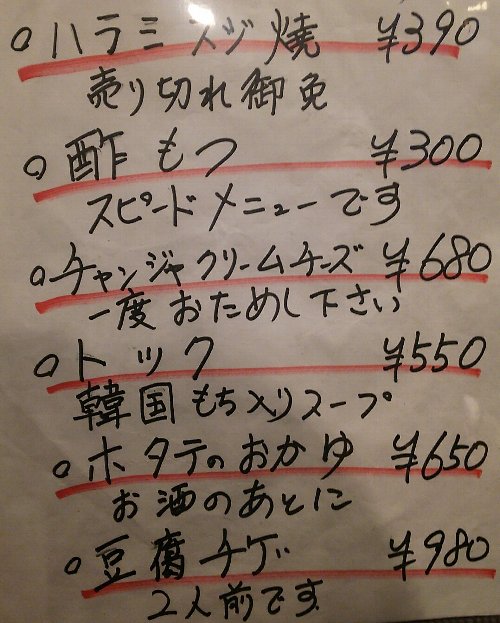 ○ハラミスジ焼 ¥390
売り切れ御免
○酢もつ ¥300
スピードメニューです
○チャンジャクリームチーズ ¥680
一度おためし下さい
○トック ¥550
韓国もち入りスープ
○ホタテのおかゆ ¥650
お酒のあとに
○豆腐チゲ ¥980
2人前です